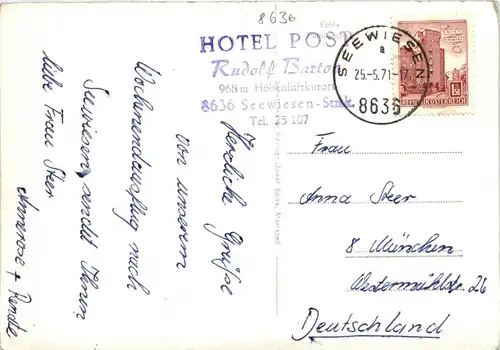 8636
HOTEL POST
Rudolf Bartos
968 m Höhenluftkurort
8636 Seewiesen-Stmk.
Tel. 25 107
SEEWIESEN
a
25.-5.71-17
8636
REPUBLIK ÖSTERREICH
1.50
Herzliche Grüße
von unserem
Wochenendausflug nach
Seewiesen sendet Ihnen
liebe Frau Steer
Annerose + Renate
Frau
Anna Steer
8 München
26
Deutschland